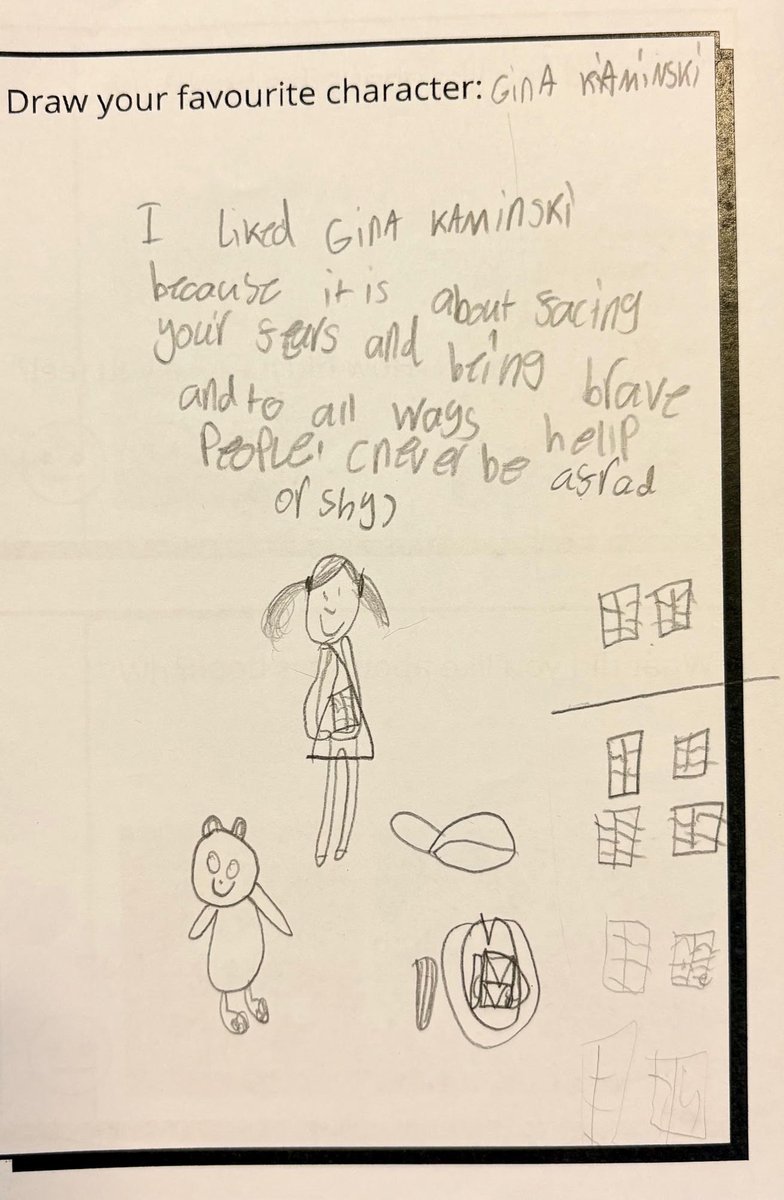 Draw your favourite character: GinA KiAMiNSKi
I liked GinA KAMinSKi
because it is about facing
your fears and being brave
and to all ways hellp
PeoPle. (never be afrad
or shy)